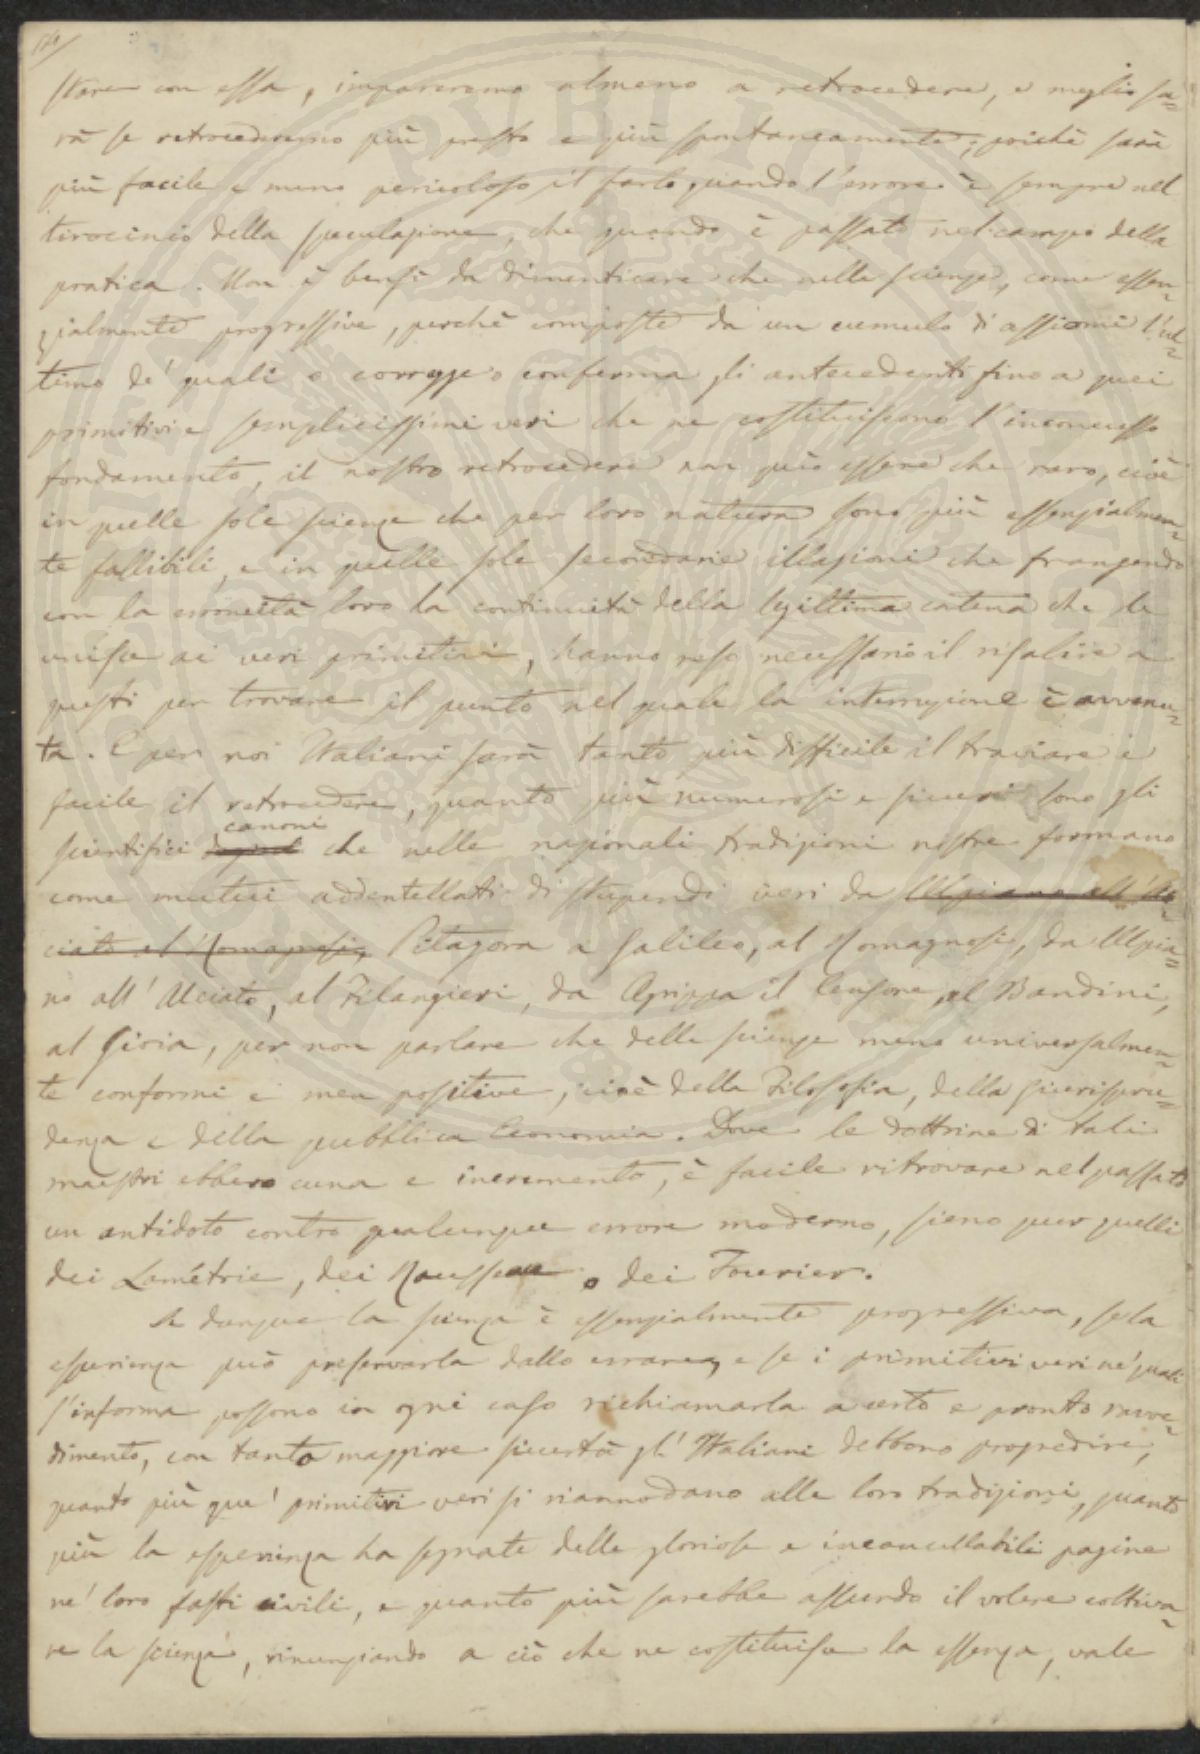 stare con essa, impareremo almeno a retrocedere, e meglio sa=
rà se retrocederemo più presto e più spontaneamente; poichè sarà
più facile e meno pericoloso il farlo quando l'errore è sempre nel
tirocinio della speculazione, che quando è passato nel campo della
pratica. Non è bensì da dimenticare che nelle scienze, come essen=
zialmente progressive, perchè composte da un cumulo di assiomi l'ul=
timo de' quali o corregge o conferma gli antecedenti fino a quei
primitivi e semplicissimi veri che ne costituiscono l'inconcusso
fondamento, il nostro retrocedere non può essere che raro, cioè
in quelle sole scienze che per loro natura sono più essenzialmen=
te fallibili, e in quelle sole secondarie illazioni che frangendo
con la erroneità loro la continuità della legittima catena che le
unisce ai veri primitivi, hanno reso necessario il risalire a
questi per trovare il punto nel quale la interruzione è avvenu=
ta. E per noi Italiani sarà tanto più difficile il traviare e
facile il retrocedere, quanto più numerosi e sicuri sono gli
canoni
scientifici che nelle nazionali tradizioni nostre formano
come mutui addentellati di stupendi veri da Ulpiano all'Al=
ciato al Romagnosi, Pitagora a Galileo, al Romagnosi, da Ulpia=
no all'Alciato, al Filangieri, da Agrippa il Censore, al Bandini,
al Gioia, per non parlare che delle scienze meno universalmen=
te conformi e men positive, cioè della Filosofia, della giurispru=
denza e della pubblica Economia. Dove le dottrine di tali
maestri ebbero cuna e incremento, è facile ritrovare nel passato
un antidoto contro qualunque errore moderno, sieno pur quelli
dei Lamétrie, dei Rousseau o dei Fourier.
Se dunque la scienza è essenzialmente progressiva, se la
esperienza può preservarla dallo errare, e se i primitivi veri ne' quali
s'informa possono in ogni caso richiamarla a certo e pronto ravve=
dimento, con tanto maggiore sicurtà gl'Italiani debbono progredire,
quanto più que' primitivi veri si riannodano alle loro tradizioni, quanto
più la esperienza ha segnate delle gloriose e incancellabili pagine
ne' loro fasti civili, e quanto più sarebbe assurdo il volere coltiva=
re la scienza, rinunziando a ciò che ne costituisce la essenza, vale